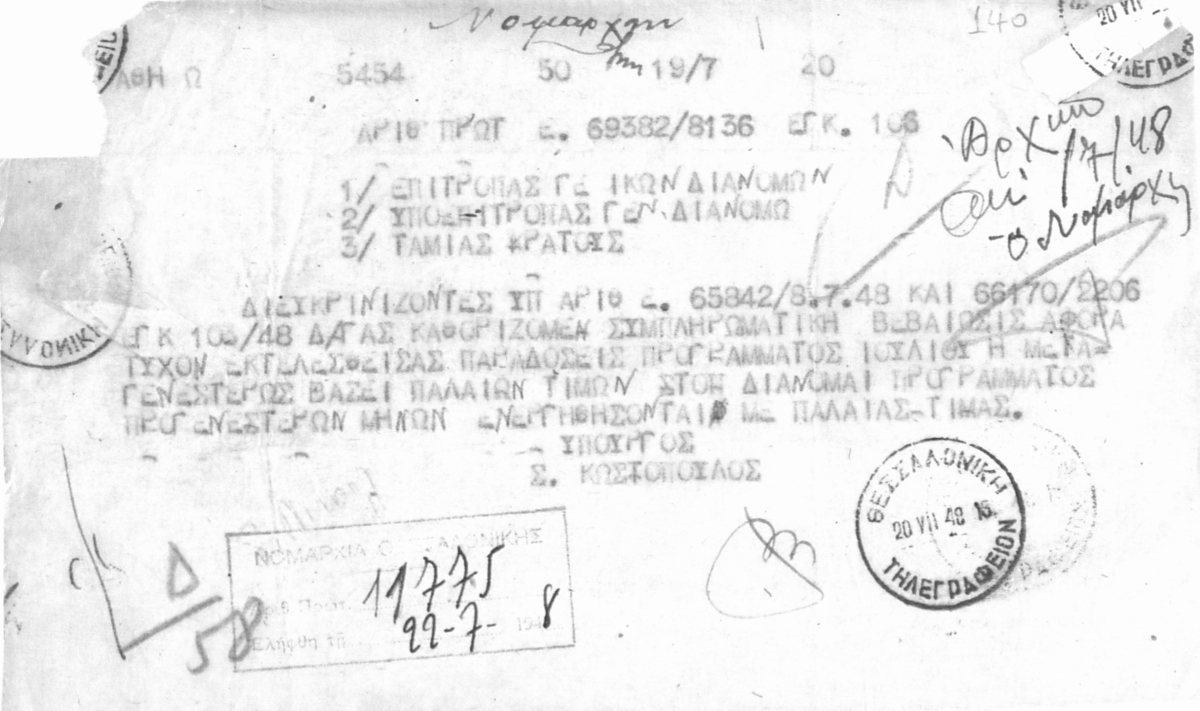 Νομαρχην
140
ΑΘΗ Ω 5454 50 19/7 20
ΑΡΙΘ ΠΡΩΤ Ε. 69382/8136 ΕΓΚ. 106
1/ ΕΠΙΤΡΟΠΑΣ ΓΕ ΙΚΩΝ ΔΙΑΝΟΜΩΝ
2/ ΥΠΟΕΠΙΤΡΟΠΑΣ ΓΕΝ. ΔΙΑΝΟΜΩ
3/ ΤΑΜΙΑΣ ΚΡΑΤΟΥΣ
ΔΙΕΥΚΡΙΝΙΖΟΝΤΕΣ ΥΠ ΑΡΙΘ Ε. 65842/8.7.48 ΚΑΙ 66170/2206
ΕΓΚ 103/48 Δ/ΓΑΣ ΚΑΘΟΡΙΖΟΜΕΝ ΣΥΜΠΛΗΡΩΜΑΤΙΚΗ ΒΕΒΑΙΩΣΙΣ ΑΦΟΡΑ
ΤΥΧΟΝ ΕΚΤΕΛΕΣΘΕΙΣΑΣ ΠΑΡΑΔΟΣΕΙΣ ΠΡΟΓΡΑΜΜΑΤΟΣ ΙΟΥΛΙΟΥ Η ΜΕΤΑ-
ΓΕΝΕΣΤΕΡΩΣ ΒΑΣΕΙ ΠΑΛΑΙΩΝ ΤΙΜΩΝ ΣΤΟΠ ΔΙΑΝΟΜΑΙ ΠΡΟΓΡΑΜΜΑΤΟΣ
ΠΡΟΓΕΝΕΣΤΕΡΩΝ ΜΗΝΩΝ ΕΝΕΡΓΗΘΗΣΟΝΤΑΙ ΜΕ ΠΑΛΑΙΑΣ ΤΙΜΑΣ.
ΥΠΟΥΡΓΟΣ
Σ. ΚΩΣΤΟΠΟΥΛΟΣ
20 VII
ΤΗΛΕΓΡΑΦ
/7/48
ο Νομάρχη
ΛΛΟΝΙΚΗ
ΘΕΣΣΑΛΟΝΙΚΗ
20 VII 48 15
ΤΗΛΕΓΡΑΦΕΙΟΝ
Δ/58
ΝΟΜΑΡΧΙΑ Θ ΑΛΟΝΙΚΗΣ
Πρωτ. 11775
Ελήφθη τη 22-7- 1948